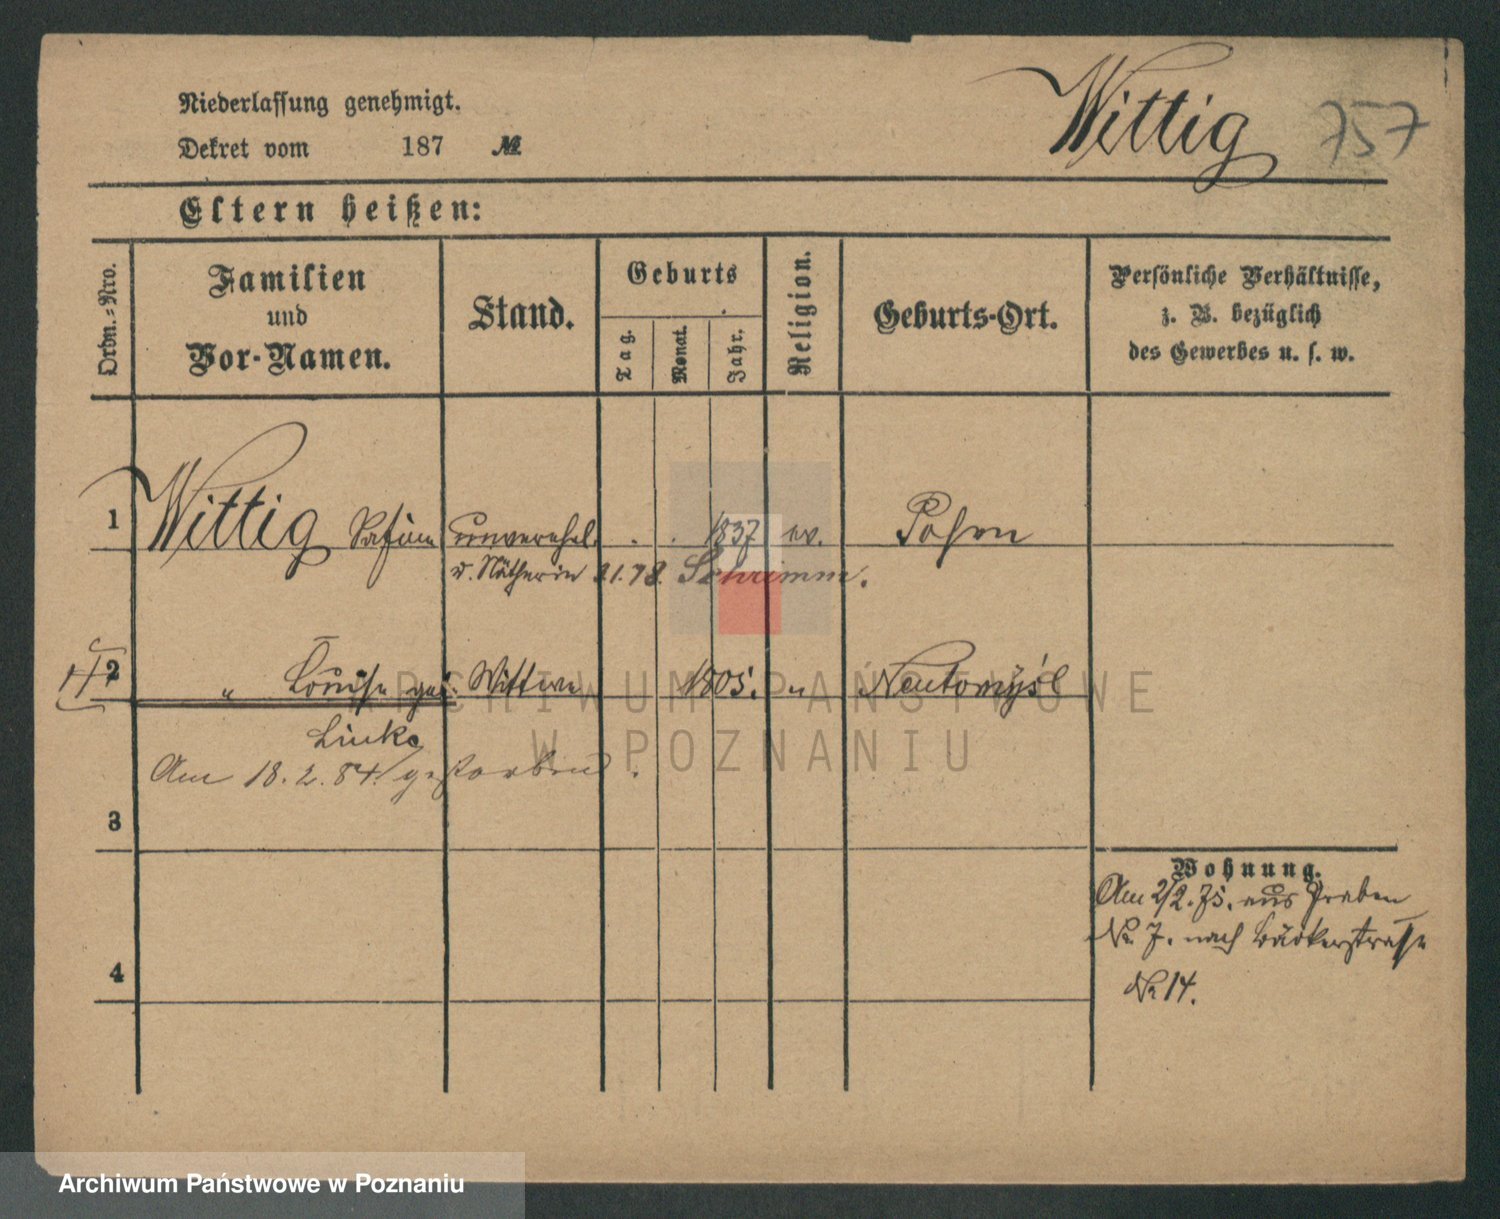 Niederlassung genehmigt.
Wittig 757
Dekret vom 187 №
Eltern heißen:
Ordn.-Nro.
Familien
und
Vor-Namen.
Stand.
Geburts
Tag.
Monat.
Jahr.
Religion.
Geburts-Ort.
Persönliche Verhältnisse,
z. B. bezüglich
des Gewerbes u. s. w.
1 Wittig unverehel. . . 1837 ev. Posen
u. Nätherin 21.78. Schrimm.
2 " Louise geb. Wittwe 1805. " Neutomyśl
Linke
Am 18.2.84. gestorben.
3
4
Wohnung.
Am 2/2.75. aus Graben
No. 7. nach Bäckerstraße
No 14.
ARCHIWUM PAŃSTWOWE
W POZNANIU
Archiwum Państwowe w Poznaniu